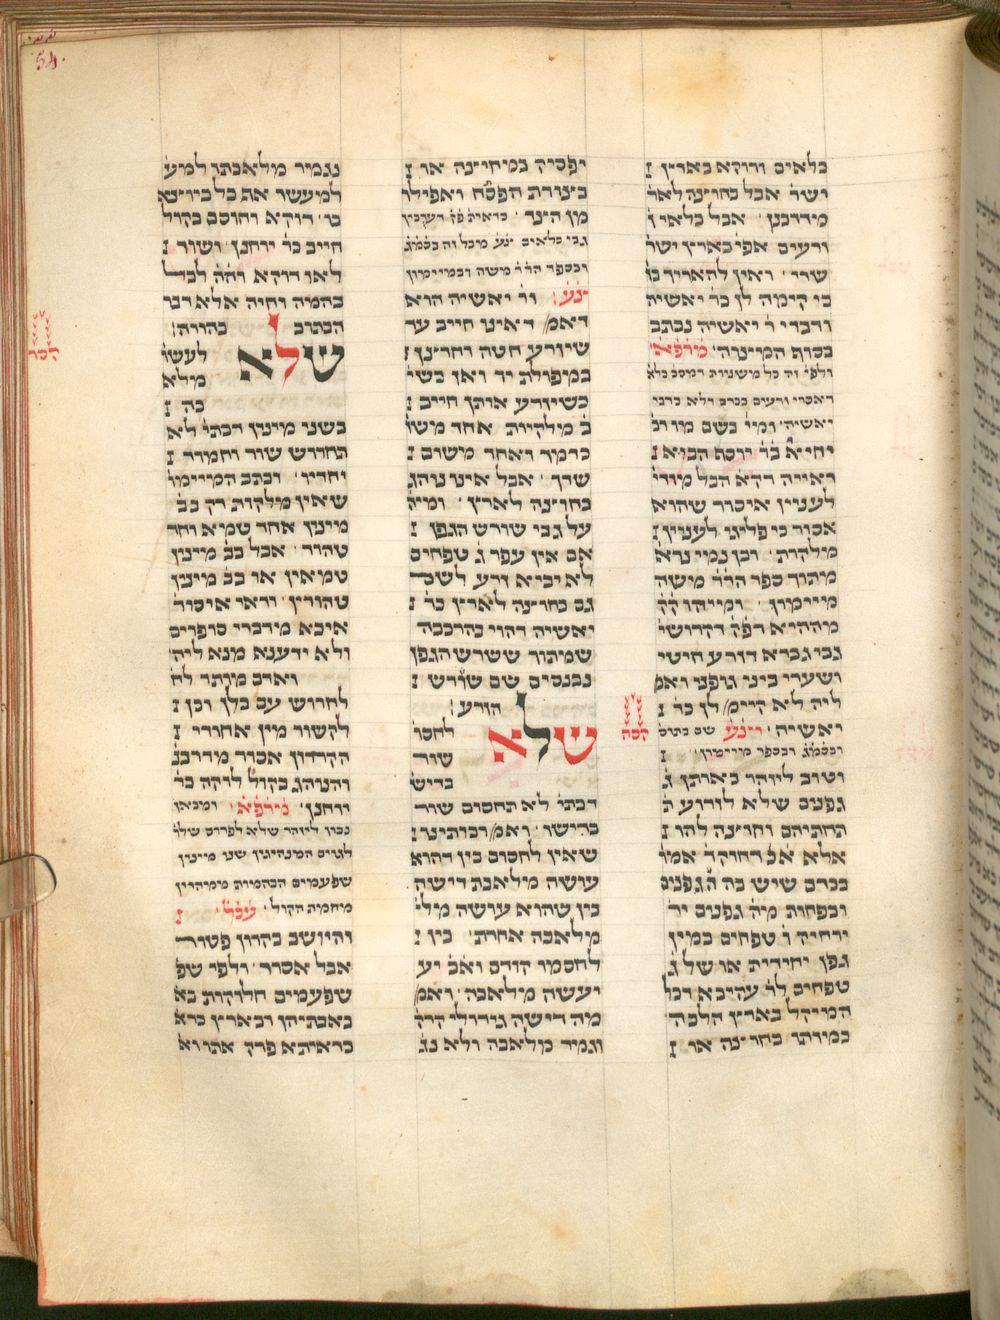 54.
כלאים ודוקא בארץ
ושר אבל בחוצה לאר
מדרבנן אבל כלאי
זרעים אפי בארץ שר
שרי ואין להאריך בו
כי קימה לן כר יאשיה
ודברי ר יאשיה נכתב
בסוף המצוה מורפא
ולפי זה כל משניות דמסכ כלא
דאסרי זרעים בכרם דלא כרבי
יאשיה ומי בשם מו רב
יחיא בר יוסף הביא
ראייה דהא הכל מודי
לעניין איסור שהוא
אסור כי פליגי לעניין
מלקות וכן נמי נרא
מתוך ספר הרר משה
מיימון ומיהו
מההיא דפק דקדושי
גבי גברא דזרע חיטי
ושערי ביני גופני ואמ
ליה לא קיימ לן כר
יאשיה שם בתוס
ובסמג ובספר מיימון
וטוב ליזהר בארתן ג
גפנים שלא לזרוע ת
תחתיהם וחוצה להן
אלא אכ רחוקה אמו
בכרם שיש בה ה גפנים
ובפחות מה גפנים יר
ירחיק ו טפחים כמין
גפן יחידית או של ג
טפחים לר עקיבא דכל
המיקל בארץ הלכה
כמותו בחוצה או
יפסיק במחיצה או
בצורת הפסח ואפילו
מן הצד כדאית פק דערבין
גבי כלאים
ובספר הרר משה ובמיימון
ור יאשיה הוא
דאמ דאינו חייב עד
שיזרע חטה וחרצן
במפולת יד ואז כשי
כשיזרע אותן חייב
ב מלקיות אחד משו
כרמך ואחד משום
שדך אבל אינו נוהג
בחוצה לארץ ומיה
על גבי שורש הגפן
אם אין עפר ג טפחים
לא יביא זרע לשם
גם בחוצה לארץ כר
יאשיה דהוי כהרכבה
שמיתוך ששרש הגפן
נכנסים שם שורש
הזרע
קסה
שלא
לחסו
שור
בדיש
דכתי לא תחסום שור
בדישו ואמ רבותינו
שאין לחסום בין דהוא
עושה מלאכת דישה
בין שהוא עושה מלי
מלאכה אחרת בין
לחסמו קודם ואכ יע
יעשה מלאכה ואמ
מה דישה גידולי קרק
וגמיר מלאכה ולא נג
נגמיר מלאכתו למע
למעשר את כל כיוצא
בו דוקא וחוסם בקול
חייב כר יוחנן ושור
לאו דוקא וקק לכל
בהמה וחיה אלא דבר
הכתוב בהווה
קסו
שלא
לעשו
מלא
כה
בשני מינין דכתי לא
תחרוש שור וחמור
יחדיו וכתב המיימו
שאין מלקות רק בב
מינין אחד טמיא ואחד
טהור אבל בב מינין
טמאין או בב מינין
טהורין ודאי איסור
איכא מדברי סופרים
ולא ידענא מנא ליה
ואדם מותר לח
לחרוש עם כלן וכן
לקשור מין אחורי
הקרון אסור מדרבנ
והנוהג בקול לוקה כר
יוחנן מורפא ומכאן
נכון ליזהר שלא
לגוים המנהיגין שני מינין
שפעמים הבהמות ממהרין
מחמת הקול עכל
והיושב בקרון פטור
אבל אסור ולפי שפ
שפעמים חלוקות בא
באבתיהן ובארץ כדא
כדאיתא פרק אתו וא